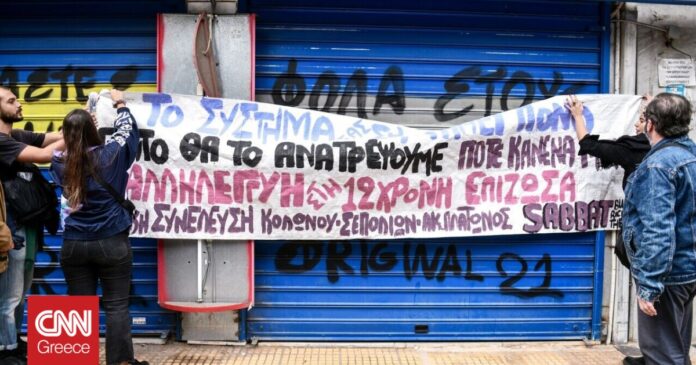 ΦΟΛΑ ΣΤΟΥΣ
ΤΟ ΣΥΣΤΗΜΑ
ΘΑ ΤΟ ΑΝΑΤΡΕΨΟΥΜΕ ΠΟΤΕ ΚΑΝΕΝΑ
ΑΛΛΗΛΕΓΓΥΗ ΣΤΗ 12ΧΡΟΝΗ ΕΠΙΖΩΣΑ
ΣΥΝΕΛΕΥΣΗ ΚΟΛΩΝΟΥ·ΣΕΠΟΛΙΩΝ·ΑΚ.ΠΛΑΤΩΝΟΣ SABBAT
ORIGINAL 21
CNN
Greece